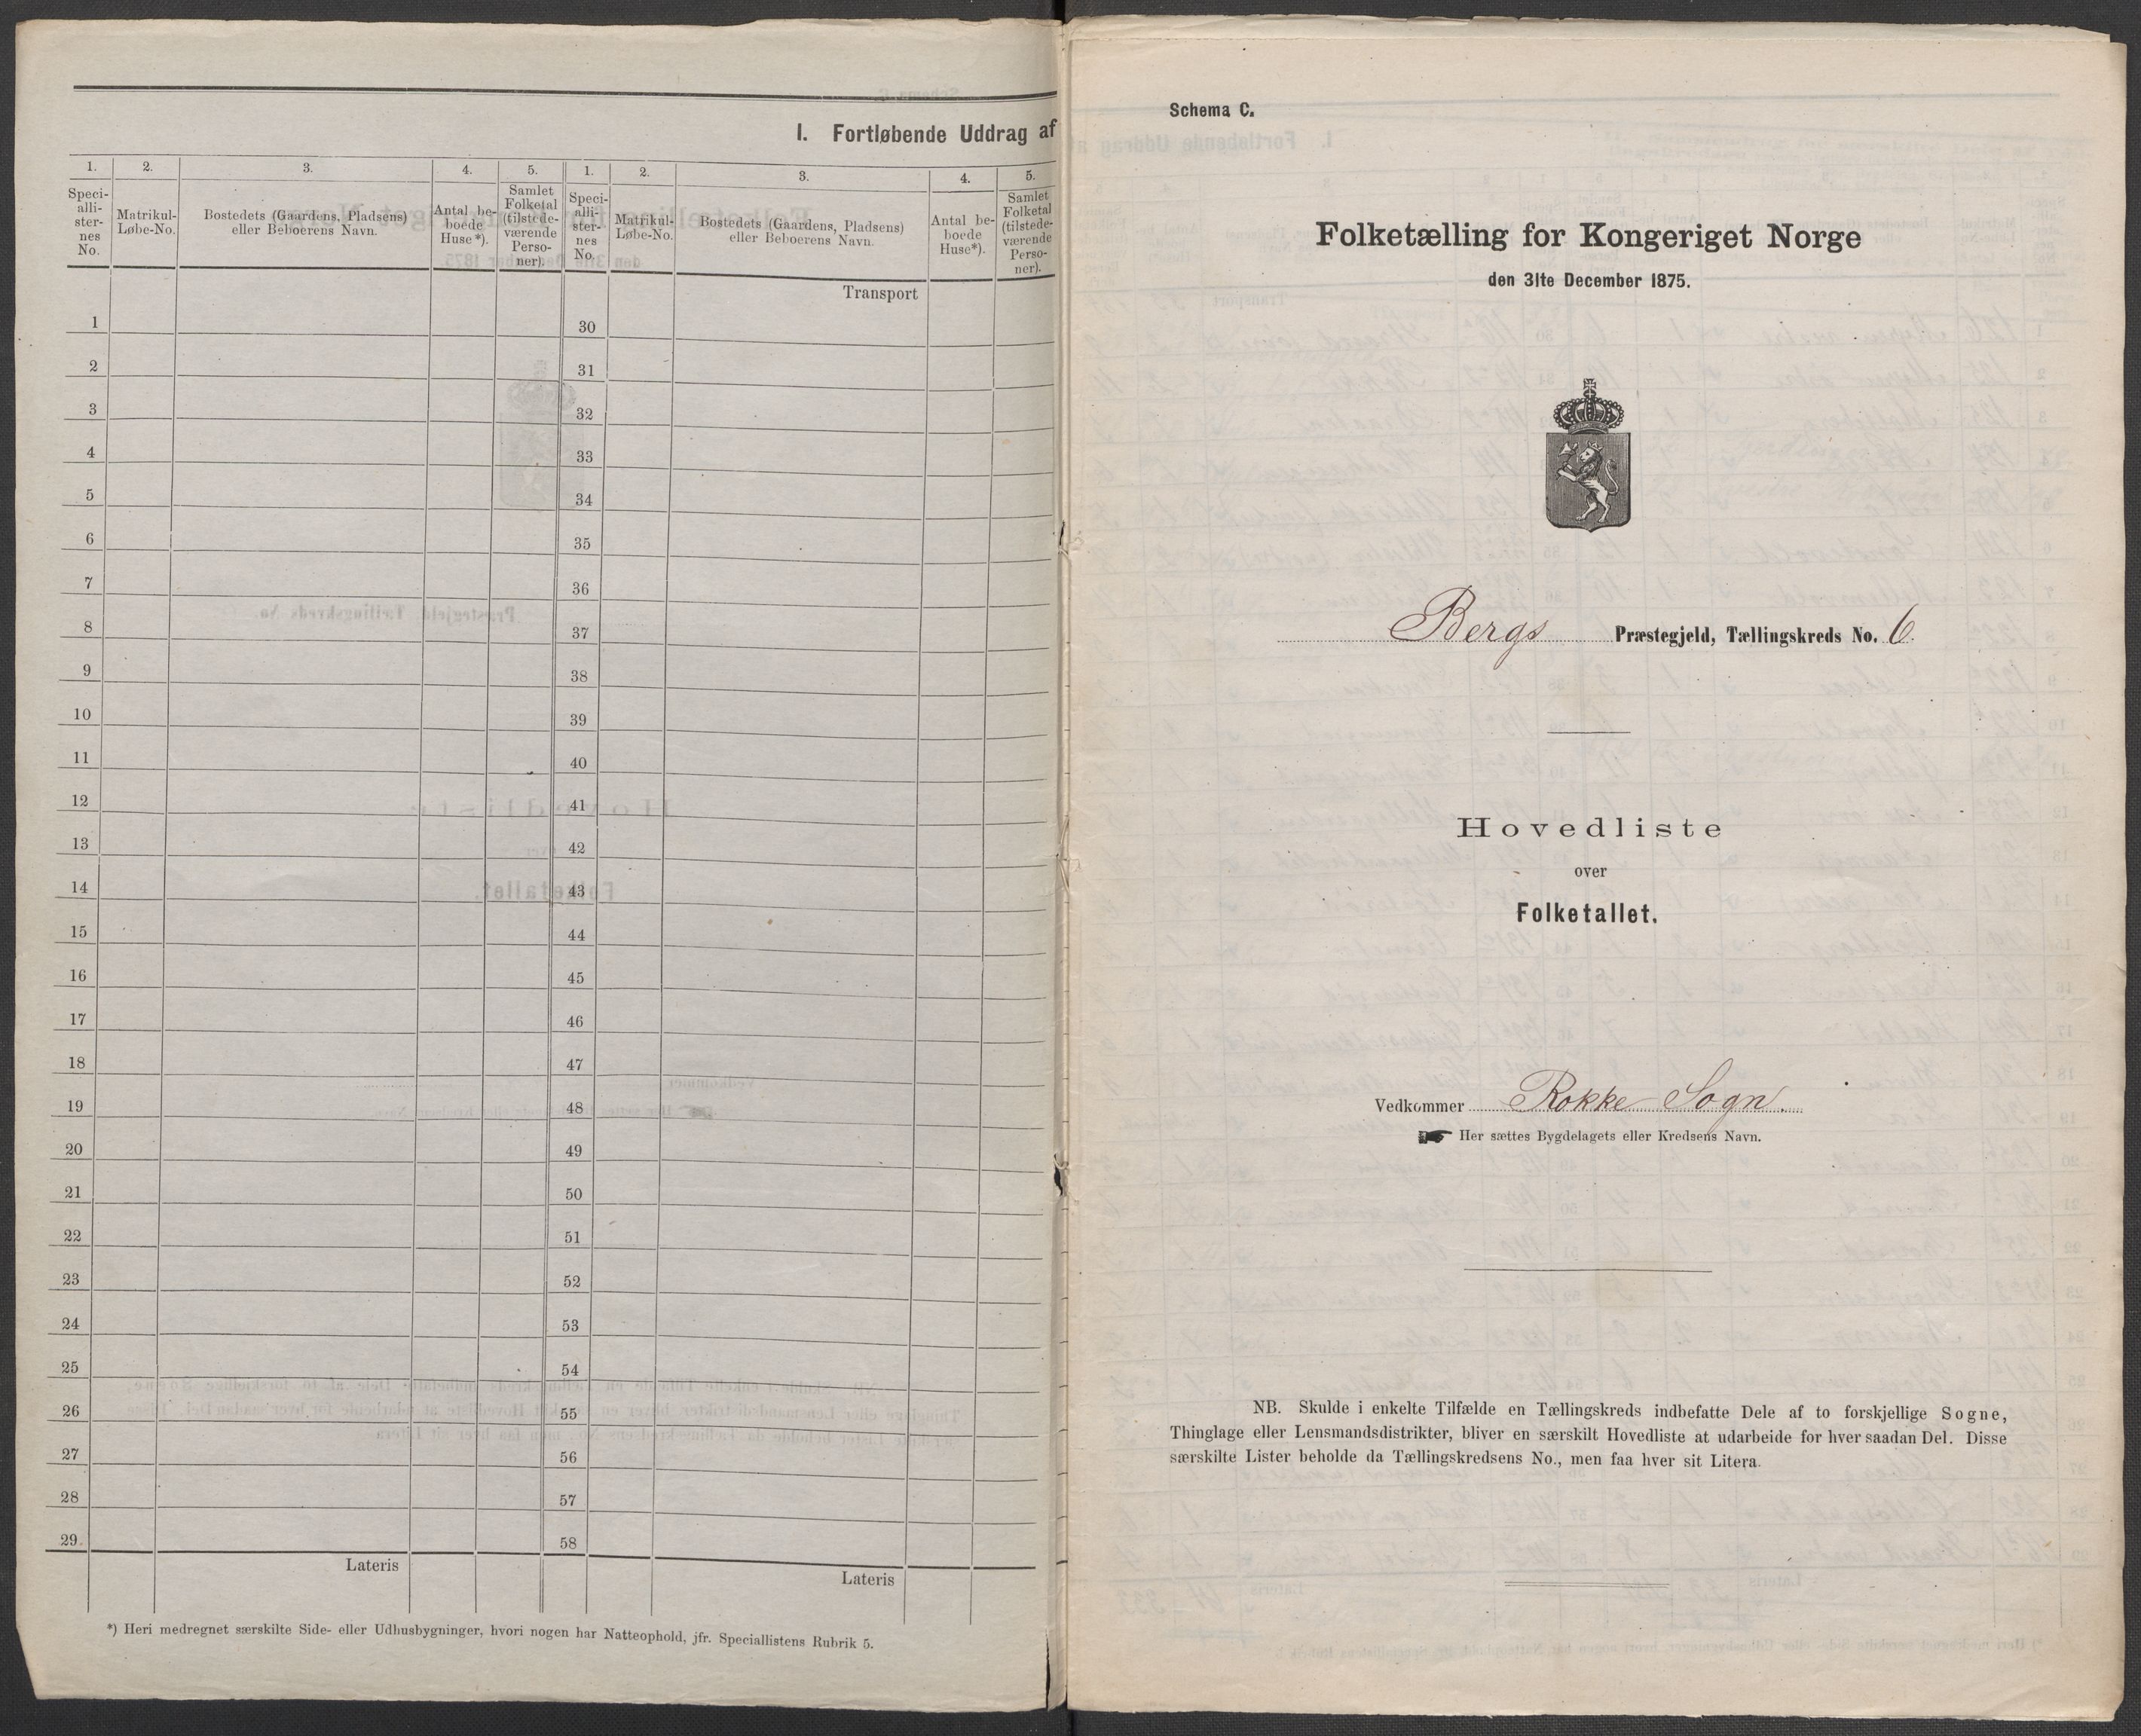 I. Fortløbende Uddrag af
1. 2. 3. 4. 5. 1. 2. 3. 4. 5.
Speci-
alli-
ster-
nes
No.
Matrikul-
Løbe-No.
Bostedets (Gaardens, Pladsens)
eller Beboerens Navn.
Antal be-
boede
Huse*).
Samlet
Folketal
(tilstede-
værende
Perso-
ner).
Speci-
alli-
ster-
nes
No.
Matrikul-
Løbe-No.
Bostedets (Gaardens, Pladsens)
eller Beboerens Navn.
Antal be-
boede
Huse*).
Samlet
Folketal
(tilstede-
værende
Perso-
ner).
Transport
1 30
2 31
3 32
4 33
5 34
6 35
7 36
8 37
9 38
10 39
11 40
12 41
13 42
14 43
15 44
16 45
17 46
18 47
19 48
20 49
21 50
22 51
23 52
24 53
25 54
26 55
27 56
28 57
29 58
Lateris Lateris
*) Heri medregnet særskilte Side- eller Udhusbygninger, hvori nogen har Natteophold, jfr. Speciallistens Rubrik 5.
Schema C.
Folketælling for Kongeriget Norge
den 31te December 1875.
Bergs Præstegjeld, Tællingskreds No. 6.
Hovedliste
over
Folketallet.
Vedkommer Rokke Sogn.
Her sættes Bygdelagets eller Kredsens Navn.
NB. Skulde i enkelte Tilfælde en Tællingskreds indbefatte Dele af to forskjellige Sogne,
Thinglage eller Lensmandsdistrikter, bliver en særskilt Hovedliste at udarbeide for hver saadan Del. Disse
særskilte Lister beholde da Tællingskredsens No., men faa hver sit Litera.